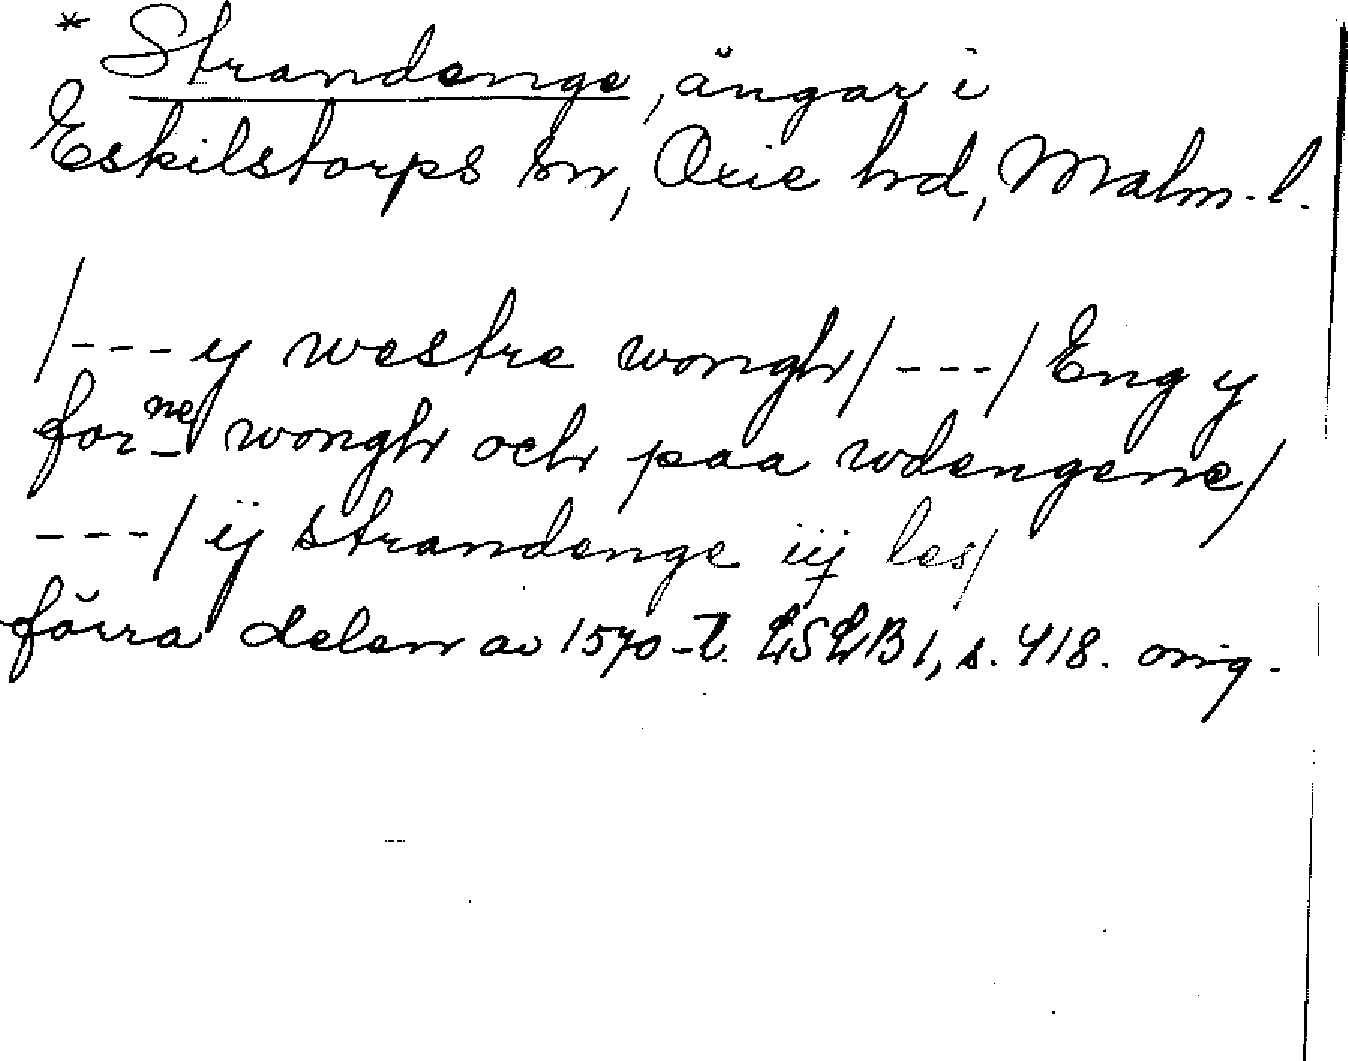 * Strandenge, ängar i
Eskilstorps sn, Oxie hd, Malm. l.
/--- y westre wongh/ ---/ Eng y
forne wongh och paa wdengene/
---/ ij strandenge iij les/
förra delen av 1570-t. LSLB 1, s. 418. orig.